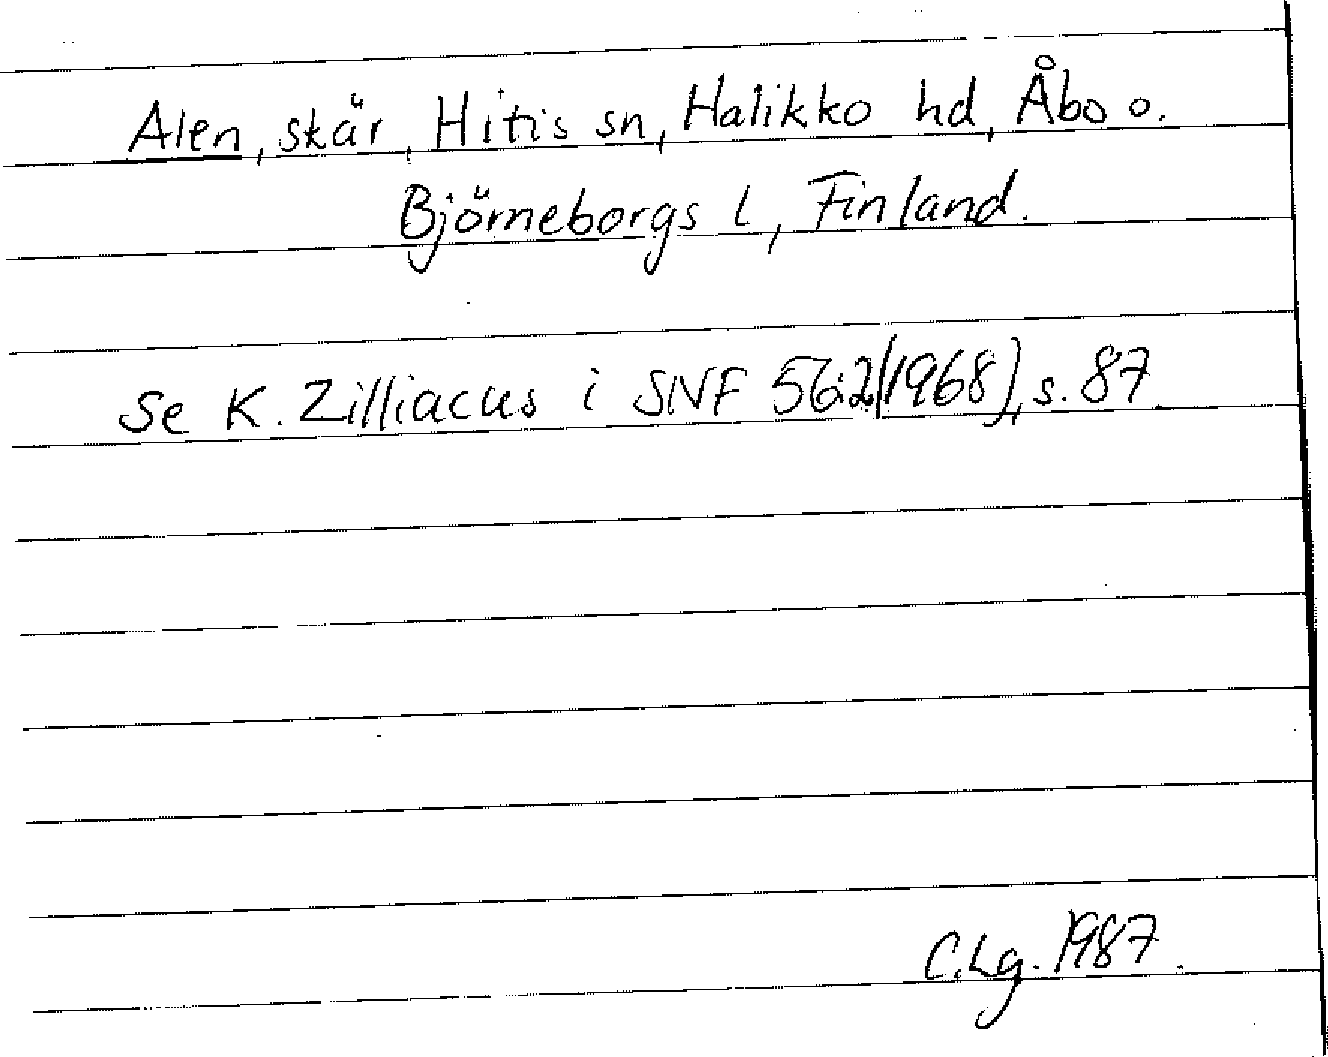 Alen, skär, Hitis sn, Halikko hd, Åbo o.
Björneborgs l, Finland.
Se K. Zilliacus i SNF 56:2(1968), s. 87
C.Lg. 1987.